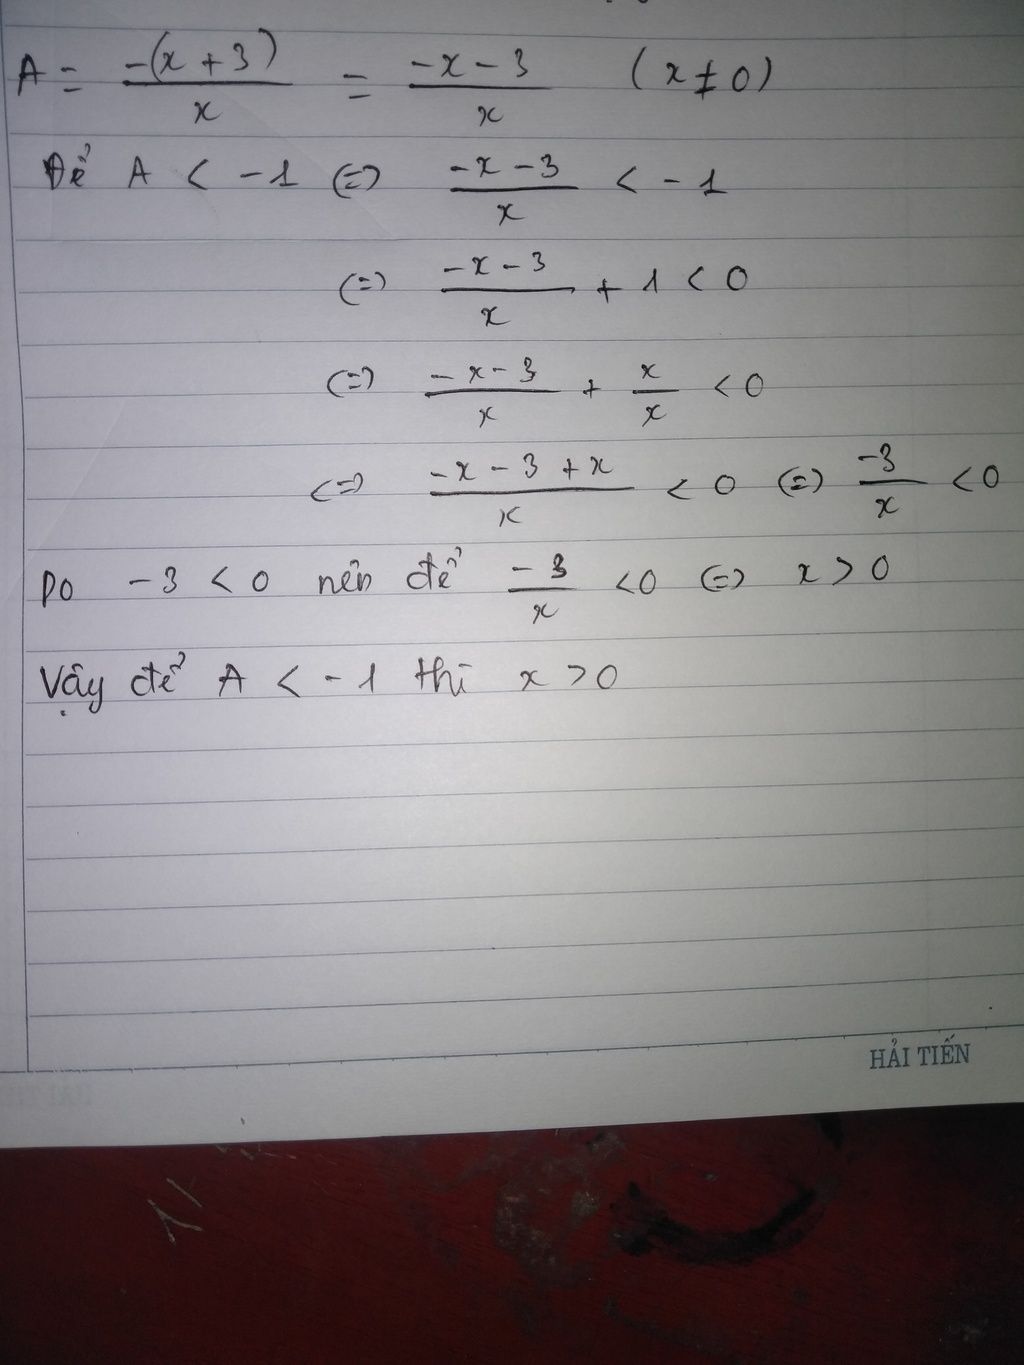 A = -(x + 3) / x = -x - 3 / x (x ≠ 0)
Để A < -1 (=) -x - 3 / x < -1
(=) -x - 3 / x + 1 < 0
(=) -x - 3 / x + x / x < 0
<=> -x - 3 + x / x < 0 (=) -3 / x < 0
Do -3 < 0 nên để -3 / x < 0 (=) x > 0
Vậy để A < -1 thì x > 0
HẢI TIẾN